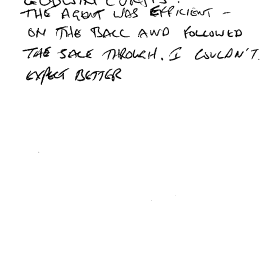 GOODWIN CURTIS.
THE AGENT WAS EFFICIENT -
ON THE BALL AND FOLLOWED
THE SALE THROUGH. I COULDN'T
EXPECT BETTER